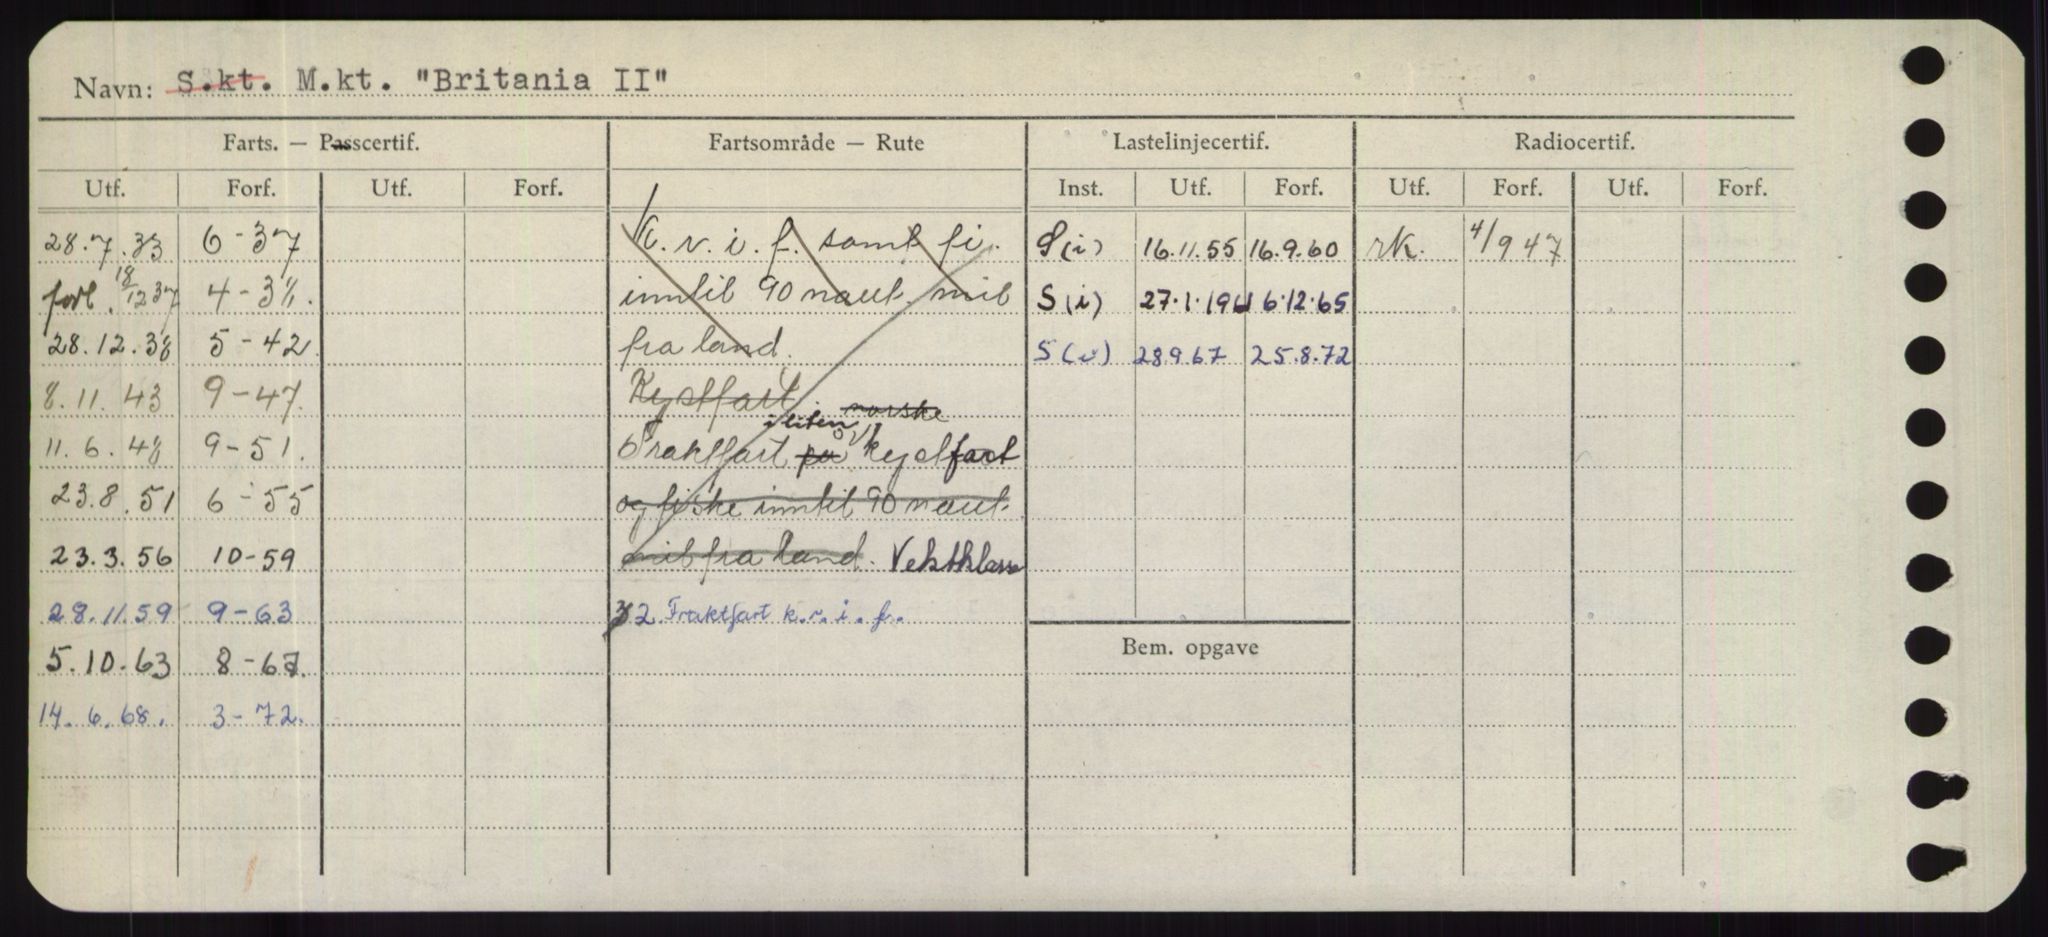 Navn: S.kt. M.kt. "Britania II"
Farts. — Passcertif. Fartsområde — Rute Lastelinjecertif. Radiocertif.
Utf. Forf. Utf. Forf. Inst. Utf. Forf. Utf. Forf. Utf. Forf.
28.7.33 6-37 K.r.i.f. samt fi. S(i) 16.11.55 16.9.60 rk. 4/9 47
forl. 18/12 37 4-38. inntil 90 naut. mil S(i) 27.1.1961 6.12.65
28.12.38 5-42. fra land. S(i) 28.9.67 25.8.72
8.11.43 9-47. Kystfart. norske
i liten
11.6.48 9-51. Fraktfart på kystfart
23.8.51 6-55 og fiske inntil 90 naut.
23.3.56 10-59 mil fra land. Vektklasse
28.11.59 9-63 2. Fraktfart k.r.i.f.
5.10.63 8-67. Bem. opgave
14.6.68. 3-72.